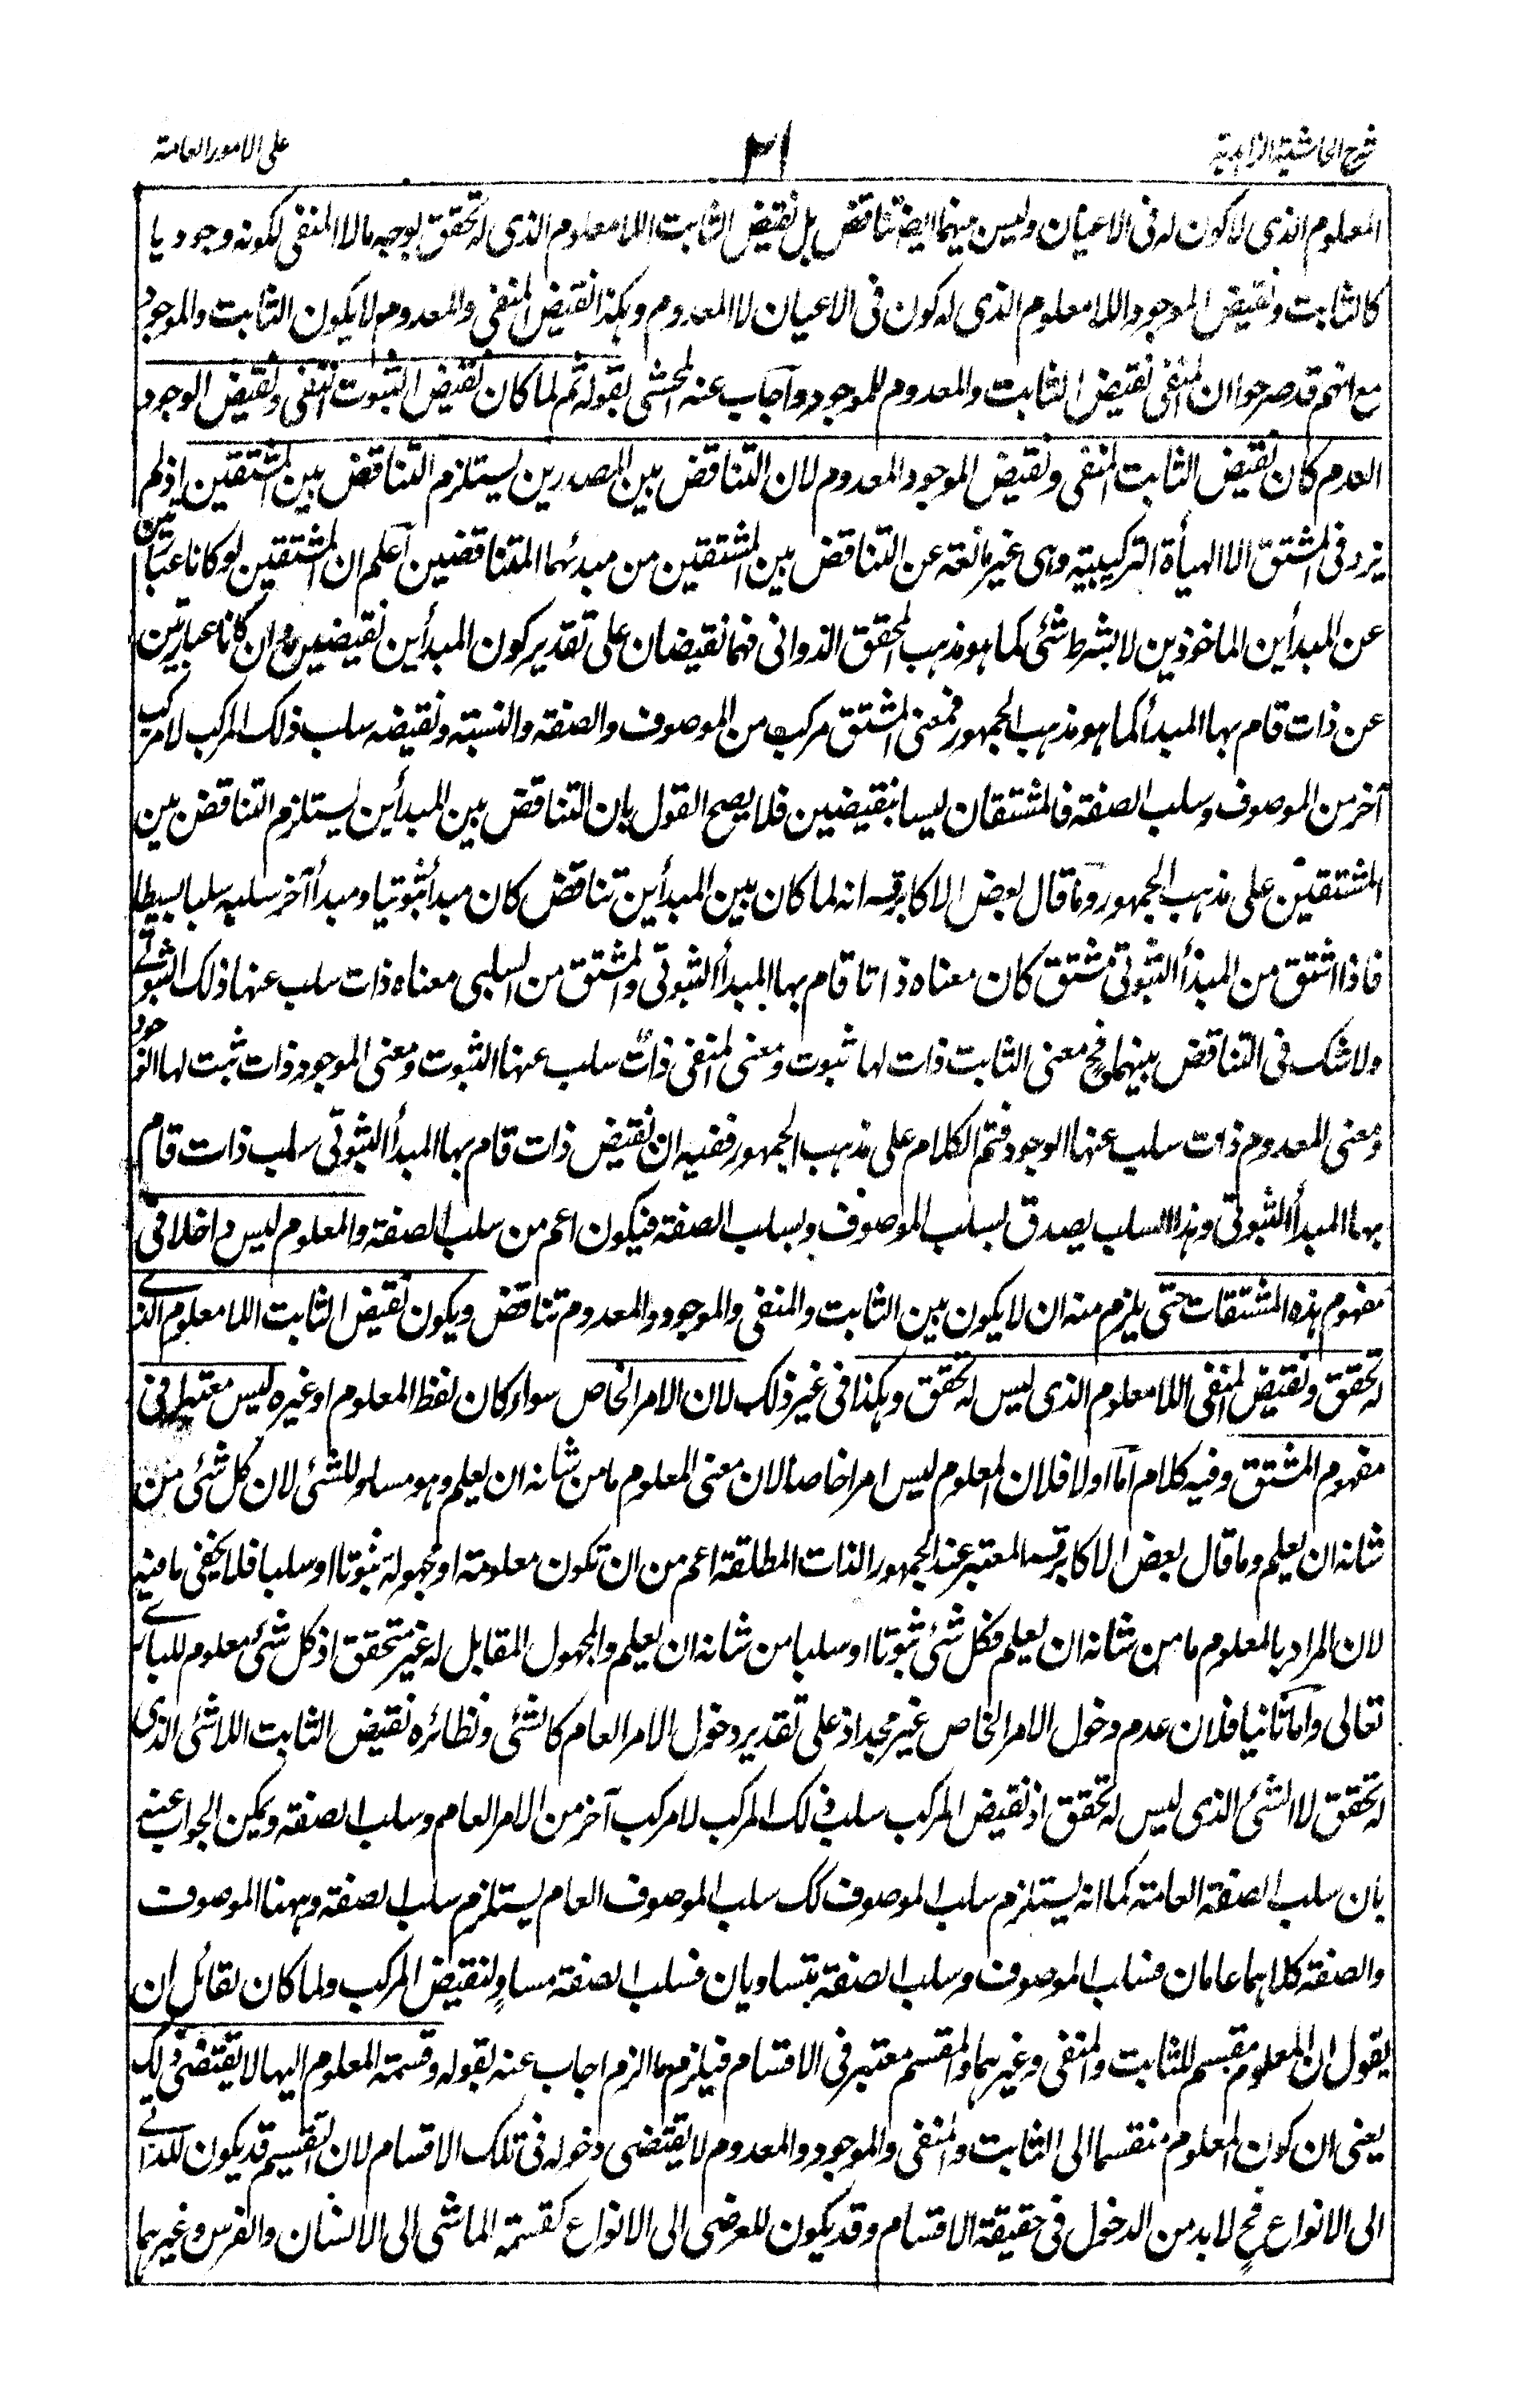 شرح الحاشية الزاهدية
٣١
على الامور العامة
المعلوم الذى لا كون له فى الاعيان وليس بينهما ايضا تناقض بل نقيض الثابت اللا معلوم الذى له تحقق بوجه ما لا المنفى لكونه وجوديا
كالثابت ونقيض الموجود اللا معلوم الذى له كون فى الاعيان لا المعدوم وهكذا نقيض المنفى والمعدوم لا يكون الثابت والموجود
مع انهم قد صرحوا ان المنفى نقيض الثابت والمعدوم للموجود وآجاب عنه المحشى بقوله ثم لما كان نقيض الثبوت النفى ونقيض الوجود
العدم كان نقيض الثابت المنفى ونقيض الموجود المعدوم لان التناقض بين المصدرين يستلزم التناقض بين المشتقين اذ لم
يزد فى المشتق الا الهيأة التركيبية وهى غير مانعة عن التناقض بين المشتقين من مبدئهما المتناقضين آعلم ان المشتقين لو كانا عبارتين
عن المبدأين الماخوذين لا بشرط شئ كما هو مذهب المحقق الدوانى فهما نقيضان على تقدير كون المبدأين نقيضين وان كانا عبارتين
عن ذات قام بها المبدأ كما هو مذهب الجمهور فمعنى المشتق مركب من الموصوف والصفة والنسبة ونقيضه سلب ذلك المركب لا مركب
آخر من الموصوف وسلب الصفة فالمشتقان ليسا بنقيضين فلا يصح القول بان التناقض بين المبدأين يستلزم التناقض بين
المشتقين على مذهب الجمهور وما قال بعض الاكابر قسه انه لما كان بين المبدأين تناقض كان مبدأ ثبوتيا ومبدأ آخر سلبه سلبا بسيطا
فاذا اشتق من المبدأ الثبوتى مشتق كان معناه ذاتا قام بها المبدأ الثبوتى والمشتق من السلبى معناه ذات سلب عنها ذلك الثبوتى
ولا شك فى التناقض بينهما فح معنى الثابت ذات لها ثبوت ومعنى المنفى ذات سلب عنها الثبوت ومعنى الموجود ذات ثبت لها الوجود
ومعنى المعدوم ذات سلب عنها الوجود فتم الكلام على مذهب الجمهور ففيه ان نقيض ذات قام بها المبدأ الثبوتى سلب ذات قام
بها المبدأ الثبوتى وهذا السلب يصدق بسلب الموصوف وبسلب الصفة فيكون اعم من سلب الصفة والمعلوم ليس داخلا فى
مفهوم هذه المشتقات حتى يلزم منه ان لا يكون بين الثابت والمنفى والموجود والمعدوم تناقض ويكون نقيض الثابت اللا معلوم الذى
له تحقق ونقيض المنفى اللا معلوم الذى ليس له تحقق وهكذا فى غير ذلك لان الامر الخاص سواء كان لفظ المعلوم او غيره ليس معتبرا فى
مفهوم المشتق وفيه كلام آما اولا فلان المعلوم ليس امرا خاصا لان معنى المعلوم ما من شانه ان يعلم وهو مساو للشئ لان كل شئ من
شانه ان يعلم وما قال بعض الاكابر قسه المعتبر عند الجمهور الذات المطلقة اعم من ان تكون معلومة او مجهولة ثبوتا او سلبا فلا يخفى ما فيه
لان المراد بالمعلوم ما من شانه ان يعلم فكل شئ ثبوتا او سلبا من شانه ان يعلم والمجهول المقابل له غير متحقق اذ كل شئ معلوم للبارى
تعالى وآما ثانيا فلان عدم دخول الامر الخاص غير مجد اذ على تقدير دخول الامر العام كالشئ ونظائره نقيض الثابت اللا شئ الذى
له تحقق لا الشئ الذى ليس له تحقق اذ نقيض المركب سلب ذلك المركب لا مركب آخر من الامر العام وسلب الصفة ويمكن الجواب عنه
بان سلب الصفة العامة كما انه يستلزم سلب الموصوف كك سلب الموصوف العام يستلزم سلب الصفة وههنا الموصوف
والصفة كلاهما عامان فسلب الموصوف وسلب الصفة متساويان فسلب الصفة مساو لنقيض المركب ولما كان لقائل ان
يقول ان المعلوم مقسم للثابت والمنفى وغيرهما والمقسم معتبر فى الاقسام فيلزم ما الزم اجاب عنه بقوله وقسمة المعلوم اليها لا يقتضى ذلك
يعنى ان كون المعلوم منقسما الى الثابت والمنفى والموجود والمعدوم لا يقتضى دخوله فى تلك الاقسام لان التقسيم قد يكون للذاتى
الى الانواع فح لا بد من الدخول فى حقيقة الاقسام وقد يكون للعرضى الى الانواع كقسمة الماشى الى الانسان والفرس وغيرهما